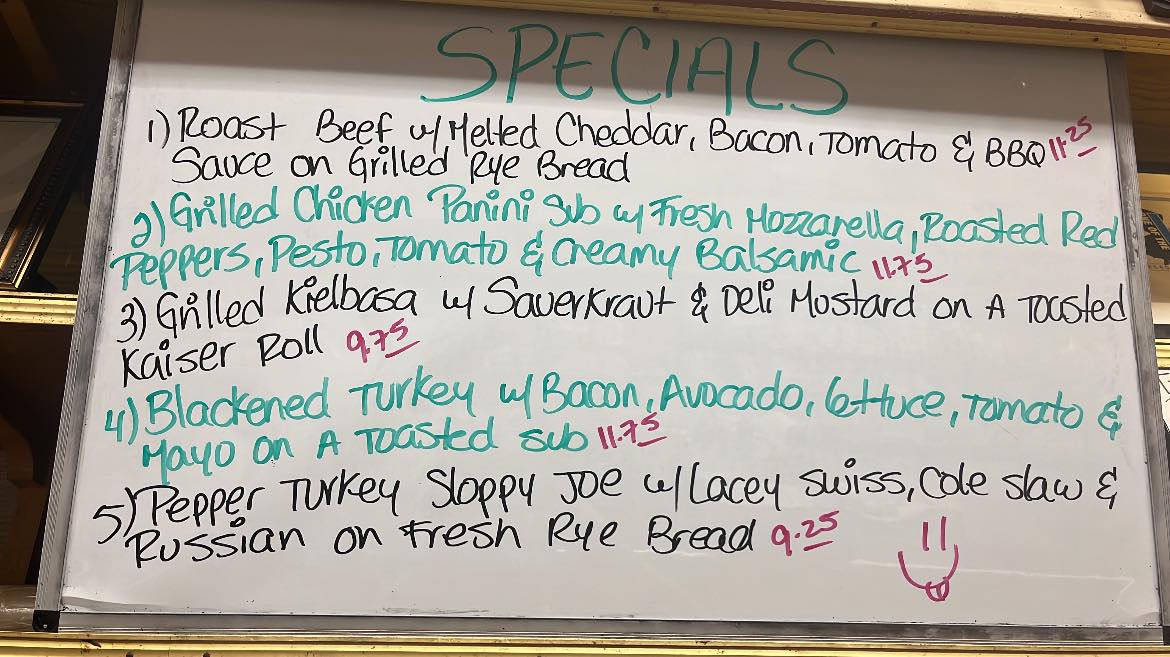 SPECIALS
1) Roast Beef w/ Melted Cheddar, Bacon, Tomato & BBQ 11.25
Sauce on Grilled Rye Bread
2) Grilled Chicken Panini Sub w/ Fresh Mozzarella, Roasted Red
Peppers, Pesto, Tomato & Creamy Balsamic 11.75
3) Grilled Kielbasa w/ Sauerkraut & Deli Mustard on A Toasted
Kaiser Roll 9.75
4) Blackened Turkey w/ Bacon, Avocado, lettuce, Tomato &
Mayo on A Toasted Sub 11.75
5) Pepper Turkey Sloppy Joe w/ Lacey Swiss, Cole slaw &
Russian on Fresh Rye Bread 9.25